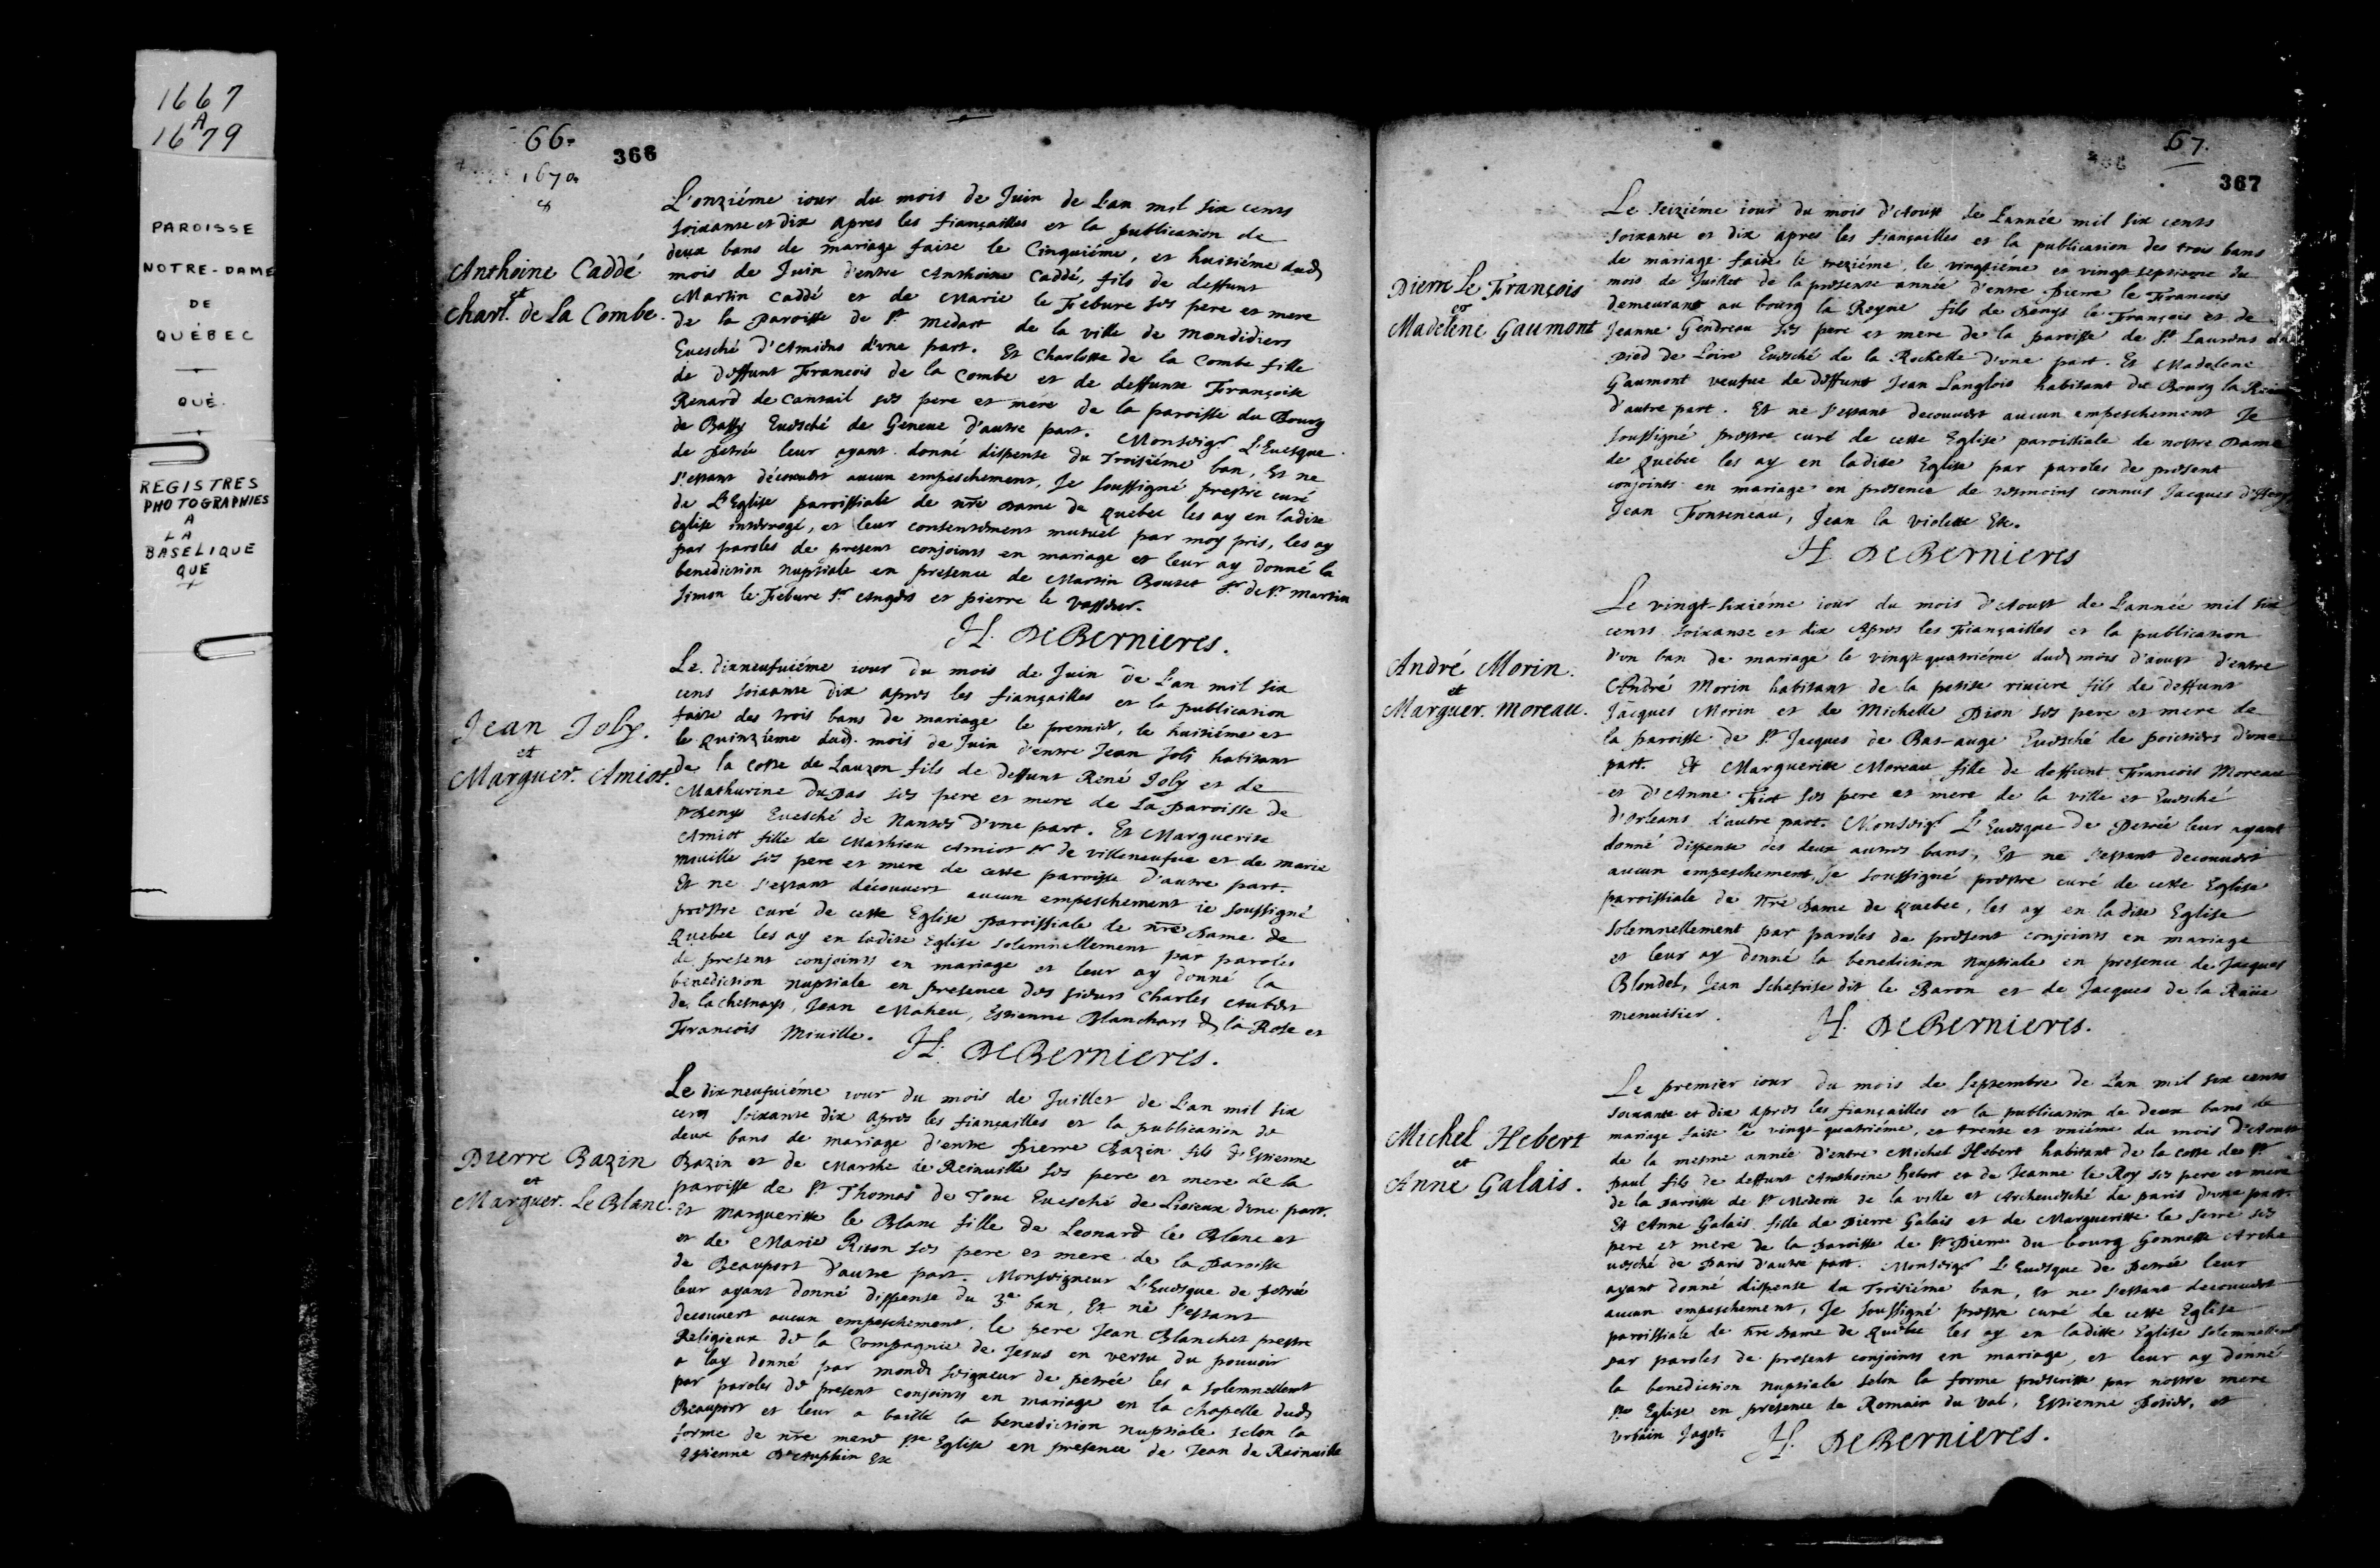 1667
A
1679
PAROISSE
NOTRE-DAME
DE
QUÉBEC
QUÉ.
REGISTRES
PHOTOGRAPHIES
A
LA
BASELIQUE
QUE
66.
366
1670.
L'onziéme iour du mois de Juin de L'an mil six cents
soixante et dix apres les fiançailles et la publication de
deux bans de mariage faite le Cinquiéme, et huitiéme dud
mois de Juin d'entre Anthoine Caddé, fils de deffunt
Martin Caddé et de Marie le Febure ses pere et mere
de la Paroisse de St Medart de la ville de Mondidiers
Euesché d'Amiens d'vne part. Et Charlotte de la Combe fille
de deffunt Francois de la Combe et de deffunte Françoise
Renard de Cantail ses pere et mere de la paroisse du Bourg
de Bassy Euesché de Geneue d'autre part. Monseigr L'Euesque
de petrée leur ayant donné dispense du Troisiéme ban, Et ne
s'estant découvert aucun empeschement, Je soussigné prestre curé
de L'Eglise paroissiale de nre Dame de Quebec les ay en ladite
Eglise interrogé, et leur consentement mutuel par moy pris, les ay
par paroles de present conjoints en mariage et leur ay donné la
benediction nuptiale en presence de Martin Boutet Sr de St Martin
Simon le Febure Sr Angers et pierre le vasseur.
H. DeBernieres.
Anthoine Caddé
et
Charl. de La Combe.
Le dixneufuiéme iour du mois de Juin de L'an mil six
cens soixante dix apres les fiançailles et la publication
faite des trois bans de mariage le premier, le huitiéme et
le Quinziéme dud. mois de Juin d'entre Jean Joli habitant
de la Coste de Lauzon fils de deffunt René Joly et de
Mathurine DuPas ses pere et mere de La Paroisse de
St Denys Euesché de Nantes d'vne part. Et Marguerite
Amiot fille de Mathieu Amiot Sr de villeneufue et de marie
Miuille ses pere et mere de cette paroisse d'autre part.
Et ne s'estant découvert aucun empeschement ie soussigné
prestre curé de cette Eglise Paroissiale de nre Dame de
Quebec les ay en ladite Eglise solemnellement par paroles
de present conjoints en mariage et leur ay donné la
benediction nuptiale en presence des sieurs Charles Aubert
de la chesnays, Jean Maheu, Estienne Blanchart d la Rose et
Francois Miuille.
H. DeBernieres.
Jean Joly.
et
Marguer. Amiot.
Le dixneufuiéme iour du mois de Juillet de L'an mil six
cens soixante dix apres les fiançailles et la publication de
deux bans de mariage d'entre Pierre Bazin fils d'Estienne
Bazin et de Marthe de Reinuille ses pere et mere de la
paroisse de St Thomas de Touc Euesché de Lisieux d'vne part.
Et Margueritte le Blanc fille de Leonard le Blanc et
et de Marie Riton ses pere et mere de la Paroisse
de Beauport d'autre part. Monseigneur L'Euesque de petrée
leur ayant donné dispense du 3e ban, Et ne s'estant
decouvert aucun empeschement, le pere Jean Blanchet prestre
Religieux de la Compagnie de Jesus en vertu du pouuoir
a luy donné par mond seigneur de petrée les a solemnellemt
par paroles de present conjoints en mariage en la chapelle dud
Beauport et leur a baillé la benediction nuptiale selon la
forme de nre mere Ste Eglise en presence de Jean de Rainuille
Estienne Dauphin Etc
Pierre Bazin
et
Marguer. Le Blanc.
67.
367
Le seiziéme iour du mois d'Aoust de L'année mil six cents
soixante et dix apres les fiançailles et la publication des trois bans
de mariage faite le treziéme, le vingtiéme et vingt septiéme du
mois de Juillet de la presente année d'entre Pierre le Francois
demeurant au bourg la Reyne fils de Denys le François et de
Jeanne Gendreau ses pere et mere de la paroisse de St Laurens
Pied de Loire Euesché de la Rochelle d'vne part. Et Madelene
Gaumont veufue de deffunt Jean Langlois habitant du Bourg la Reine
d'autre part. Et ne s'estant decouvert aucun empeschement Je
soussigné prestre curé de cette Eglise paroissiale de nostre Dame
de Quebec les ay en laditte Eglise par paroles de present
conjoints en mariage en presence de tesmoins connus Jacques
Jean Fonteneau, Jean la violette Etc.
H. DeBernieres
Pierre Le François
et
Madelene Gaumont
Le vingt-sixiéme iour du mois d'Aoust de L'année mil six
cents soixante et dix Apres les Fiançailles et la publication
d'vn ban de mariage le vingt quatriéme dud mois d'aoust d'entre
André Morin habitant de la petite riuiere fils de deffunt
Jacques Morin et de Michelle Dion ses pere et mere de
la paroisse de St Jacques de Bas-auge Euesché de poictiers d'vne
part. Et Margueritte Moreau fille de deffunt Francois Moreau
et d'Anne Fiot ses pere et mere de la ville et Euesché
d'orleans d'autre part. Monseigr L'Euesque de Petrée leur ayant
donné dispense des deux autres bans, Et ne s'estant decouvert
aucun empeschement, Je soussigné prestre curé de cette Eglise
paroissiale de nre Dame de Quebec, les ay en ladite Eglise
solemnellement par paroles de present conjoints en mariage
et leur ay donné la benediction nuptiale en presence de Jacques
Blondel, Jean dit le Baron et de Jacques de la Raüe
menuisier.
H. DeBernieres.
André Morin.
et
Marguer. Moreau.
Le premier iour du mois de septembre de L'an mil six cents
soixante et dix apres les fiançailles et la publication de deux bans de
mariage faite le vingt-quatriéme, et trente et vniéme du mois d'Aoust
de la mesme année d'entre Michel Hebert habitant de la coste de St
paul fils de deffunt Anthoine Hebert et de Jeanne le Roy ses pere et mere
de la paroisse de St Mederic de la ville et Archeuesché de paris d'vne part.
Et Anne Galais fille de Pierre Galais et de Margueritte la serre ses
pere et mere de la Paroisse de St Pierre du bourg Gonnesse Arche
uesché de Paris d'autre part. Monseigr L'Euesque de Petrée leur
ayant donné dispense du Troisiéme ban, Et ne s'estant decouvert
aucun empeschement, Je soussigné prestre curé de cette Eglise
paroissiale de nre Dame de Quebec les ay en laditte Eglise solemnellemt
par paroles de present conjoints en mariage, et leur ay donné
la benediction nuptiale selon la forme prescritte par nostre mere
Ste Eglise en presence de Romain du val, Estienne Potier, et
Vrbain Jagot.
H. DeBernieres.
Michel Hebert
et
Anne Galais.